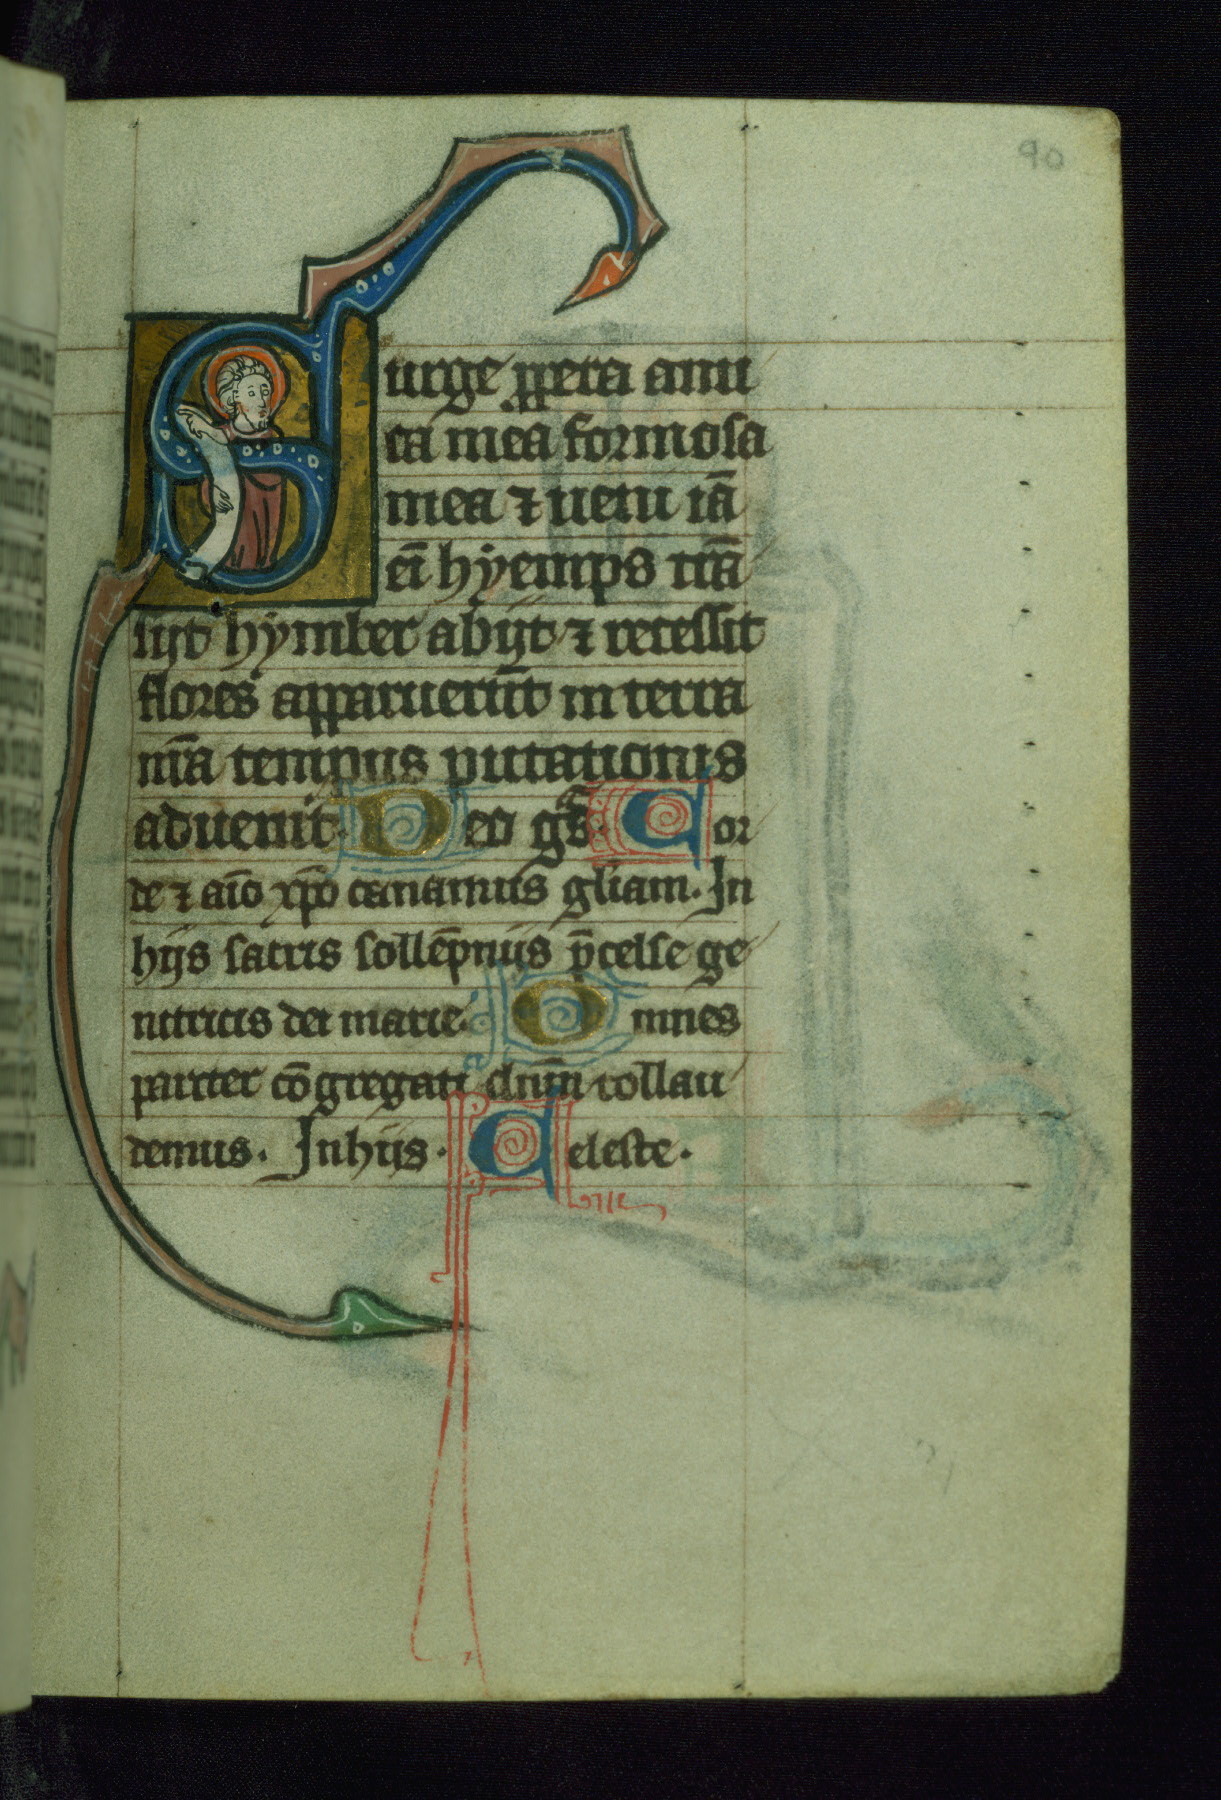 90
Surge ppera ami
ca mea formosa
mea ⁊ ueni iā
eī hyemps trā
sijt hymber abijt ⁊ recessit
flores apparuerūt in terra
nr̄a tempus putationis
aduenit. Deo gr̄s. Cor
de ⁊ aīo xp̄o canamus gl̄iam. In
hijs sacris sollēpnijs p̄celse ge
nitricis dei marie. Omnes
pariter cōgregati dn̄m collau
demus. In hijs. Celeste.